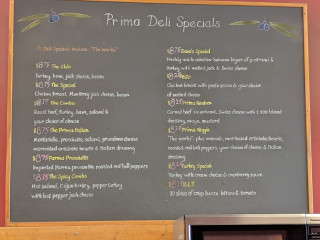 Prima Deli Specials
Deli Specials include "The Works"
$8.75 The Club
Turkey, ham, jack cheese, bacon
$8.75 The Special
Chicken breast, Monterey jack cheese, bacon
$8.75 The Combo
Roast beef, turkey, ham, salami &
your choice of cheese
$8.75 The Prima Italian
Mortadella, prosciutto, salami, provolone cheese
marinated artichoke hearts & Italian dressing
Parma Prosciutto
Imported Parma prosciutto, roasted red bell peppers
The Spicy Combo
Hot salami, Cajun turkey, pepper turkey
with hot pepper jack cheese
Dom's Special
Freshly made meatloaf between layers of pastrami &
turkey with melted jack & Swiss cheese
Pesto
Chicken breast with pesto mayo & your choice
of melted cheese
Prima Reuben
Corned beef or pastrami, Swiss cheese with 1,000 island
dressing, mayo, mustard
Prima Veggie
"The works", plus avocado, marinated artichoke hearts,
roasted red bell peppers, your choice of cheese & Italian
dressing
Turkey Special
Turkey with cream cheese & cranberry sauce
B.L.T.
10 slices of crisp bacon, lettuce & tomato